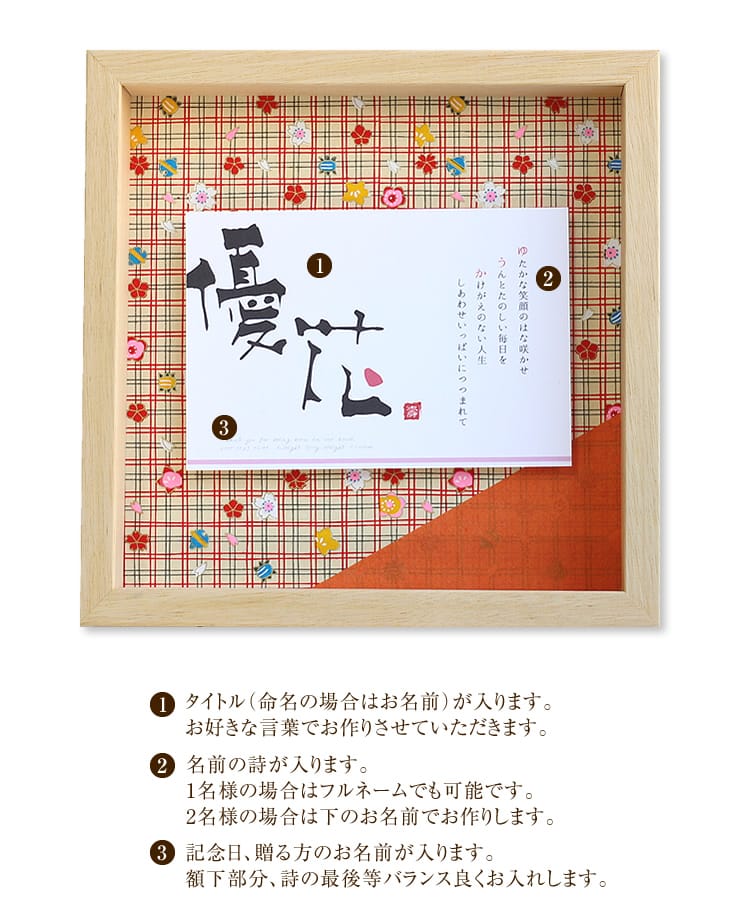 優花
ゆたかな笑顔のはな咲かせ
うんとたのしい毎日を
かけがえのない人生
しあわせいっぱいにつつまれて
1
2
3
1 タイトル(命名の場合はお名前)が入ります。
お好きな言葉でお作りさせていただきます。
2 名前の詩が入ります。
1名様の場合はフルネームでも可能です。
2名様の場合は下のお名前でお作りします。
3 記念日、贈る方のお名前が入ります。
額下部分、詩の最後等バランス良くお入れします。